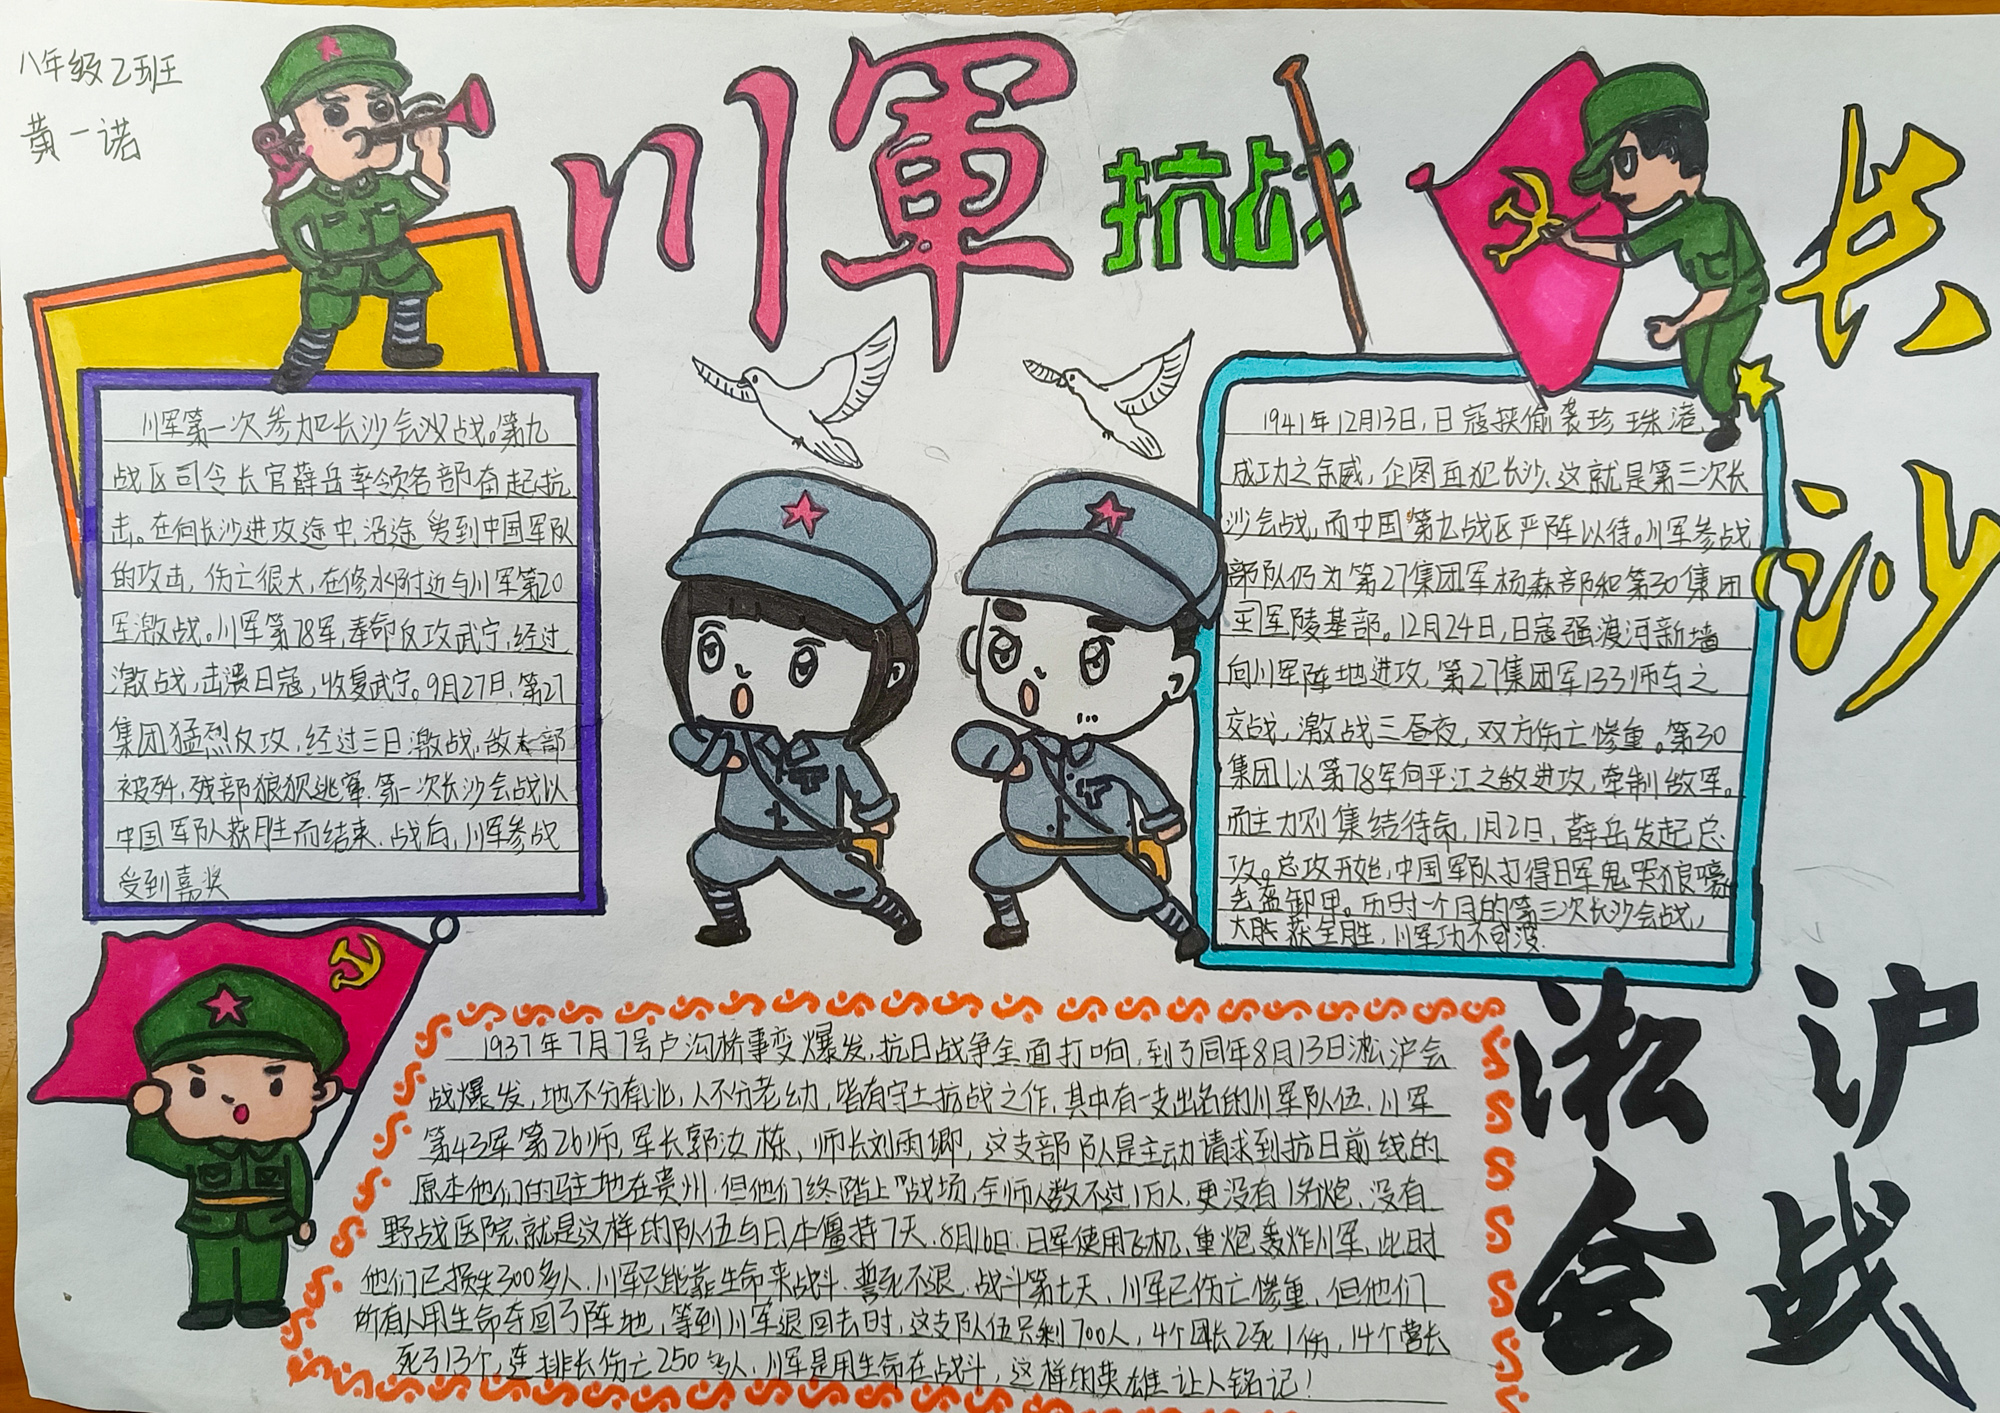 八年级乙班
黄一诺
川軍
抗战
长沙
川军第一次参加长沙会议战。第九
战区司令长官薛岳率领各部奋起抗
击。在向长沙进攻途中,沿途受到中国军队
的攻击,伤亡很大,在修水附近与川军第20
军激战。川军第78军,奉命反攻武宁,经过
激战,击溃日寇,收复武宁。9月27日,第27
集团猛烈反攻,经过三日激战,敌大部
被歼,残部狼狈逃窜.第一次长沙会战以
中国军队获胜而结束.战后,川军参战
受到嘉奖
1941年12月13日,日寇挟偷袭珍珠港,
成功之余威,企图再犯长沙.这就是第三次长
沙会战,而中国第九战区严阵以待。川军参战
部队仍为第27集团军杨森部和第30集团
王军陵基部。12月24日,日寇强渡河新墙
向川军阵地进攻,第27集团军133师与之
交战,激战三昼夜,双方伤亡惨重。第30
集团以第78军向平江之敌进攻,牵制敌军。
而主力则集结待命,1月2日,薛岳发起总
攻。总攻开始,中国军队打得日军鬼哭狼嚎
丢盔卸甲。历时一个月的第三次长沙会战,
大胜获全胜,川军功不可没.
淞沪
会战
1937年7月7号卢沟桥事变爆发,抗日战争全面打响,到了同年8月13日淞沪会
战爆发,地不分南北,人不分老幼,皆有守土抗战之作,其中有一支出名的川军队伍.川军
第43军第26师,军长郭汝栋,师长刘雨卿,这支部队是主动请求到抗日前线的
原本他们的驻地在贵州.但他们终踏上"战场,全师人数不过1万人,更没有1门炮,没有
野战医院.就是这样的队伍与日本僵持7天.8月16日.日军使用飞机,重炮轰炸川军,此时
他们已损失300多人.川军只能靠生命来战斗.誓死不退.战斗第七天,川军已伤亡惨重,但他们
所有人用生命夺回了阵地,等到川军退回去时,这支队伍只剩700人,4个团长2死1伤,14个营长
死了13个,连排长伤亡250多人.川军是用生命在战斗,这样的英雄让人铭记!